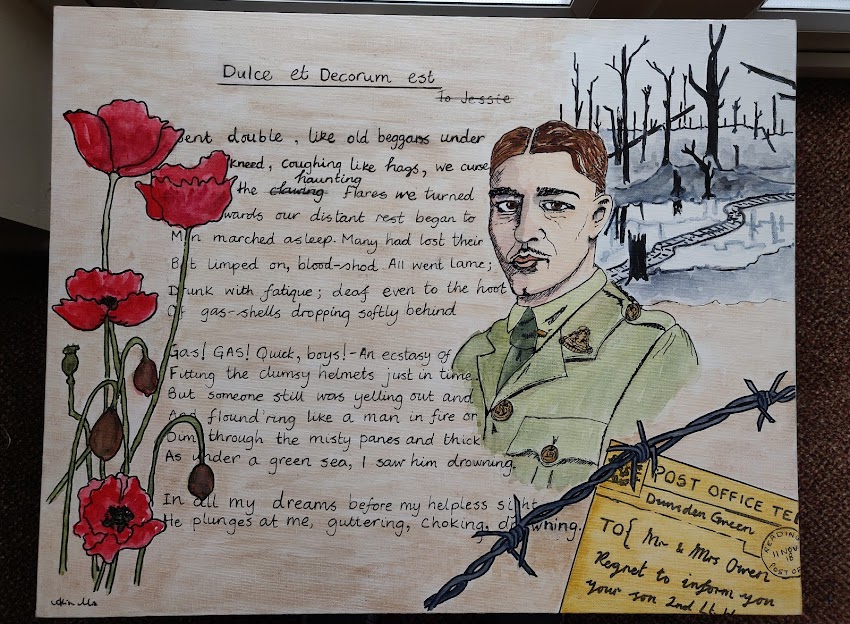 Dulce et Decorum est
To Jessie
Bent double, like old beggars under
kneed, coughing like hags, we curse
haunting
the clawing flares we turned
wards our distant rest began to
Men marched asleep. Many had lost their
But limped on, blood-shod. All went lame;
Drunk with fatigue; deaf even to the hoot
Of gas-shells dropping softly behind
Gas! GAS! Quick, boys!-An ecstasy of
Fitting the clumsy helmets just in time
But someone still was yelling out and
And flound'ring like a man in fire or
Dim through the misty panes and thick
As under a green sea, I saw him drowning.
In all my dreams before my helpless sight
He plunges at me, guttering, choking, drowning.
POST OFFICE TEL
Dunsden Green
TO{ Mr & Mrs Owen
Regret to inform you
your son 2nd Lt. W
READING
11 NOV
18
POST OF